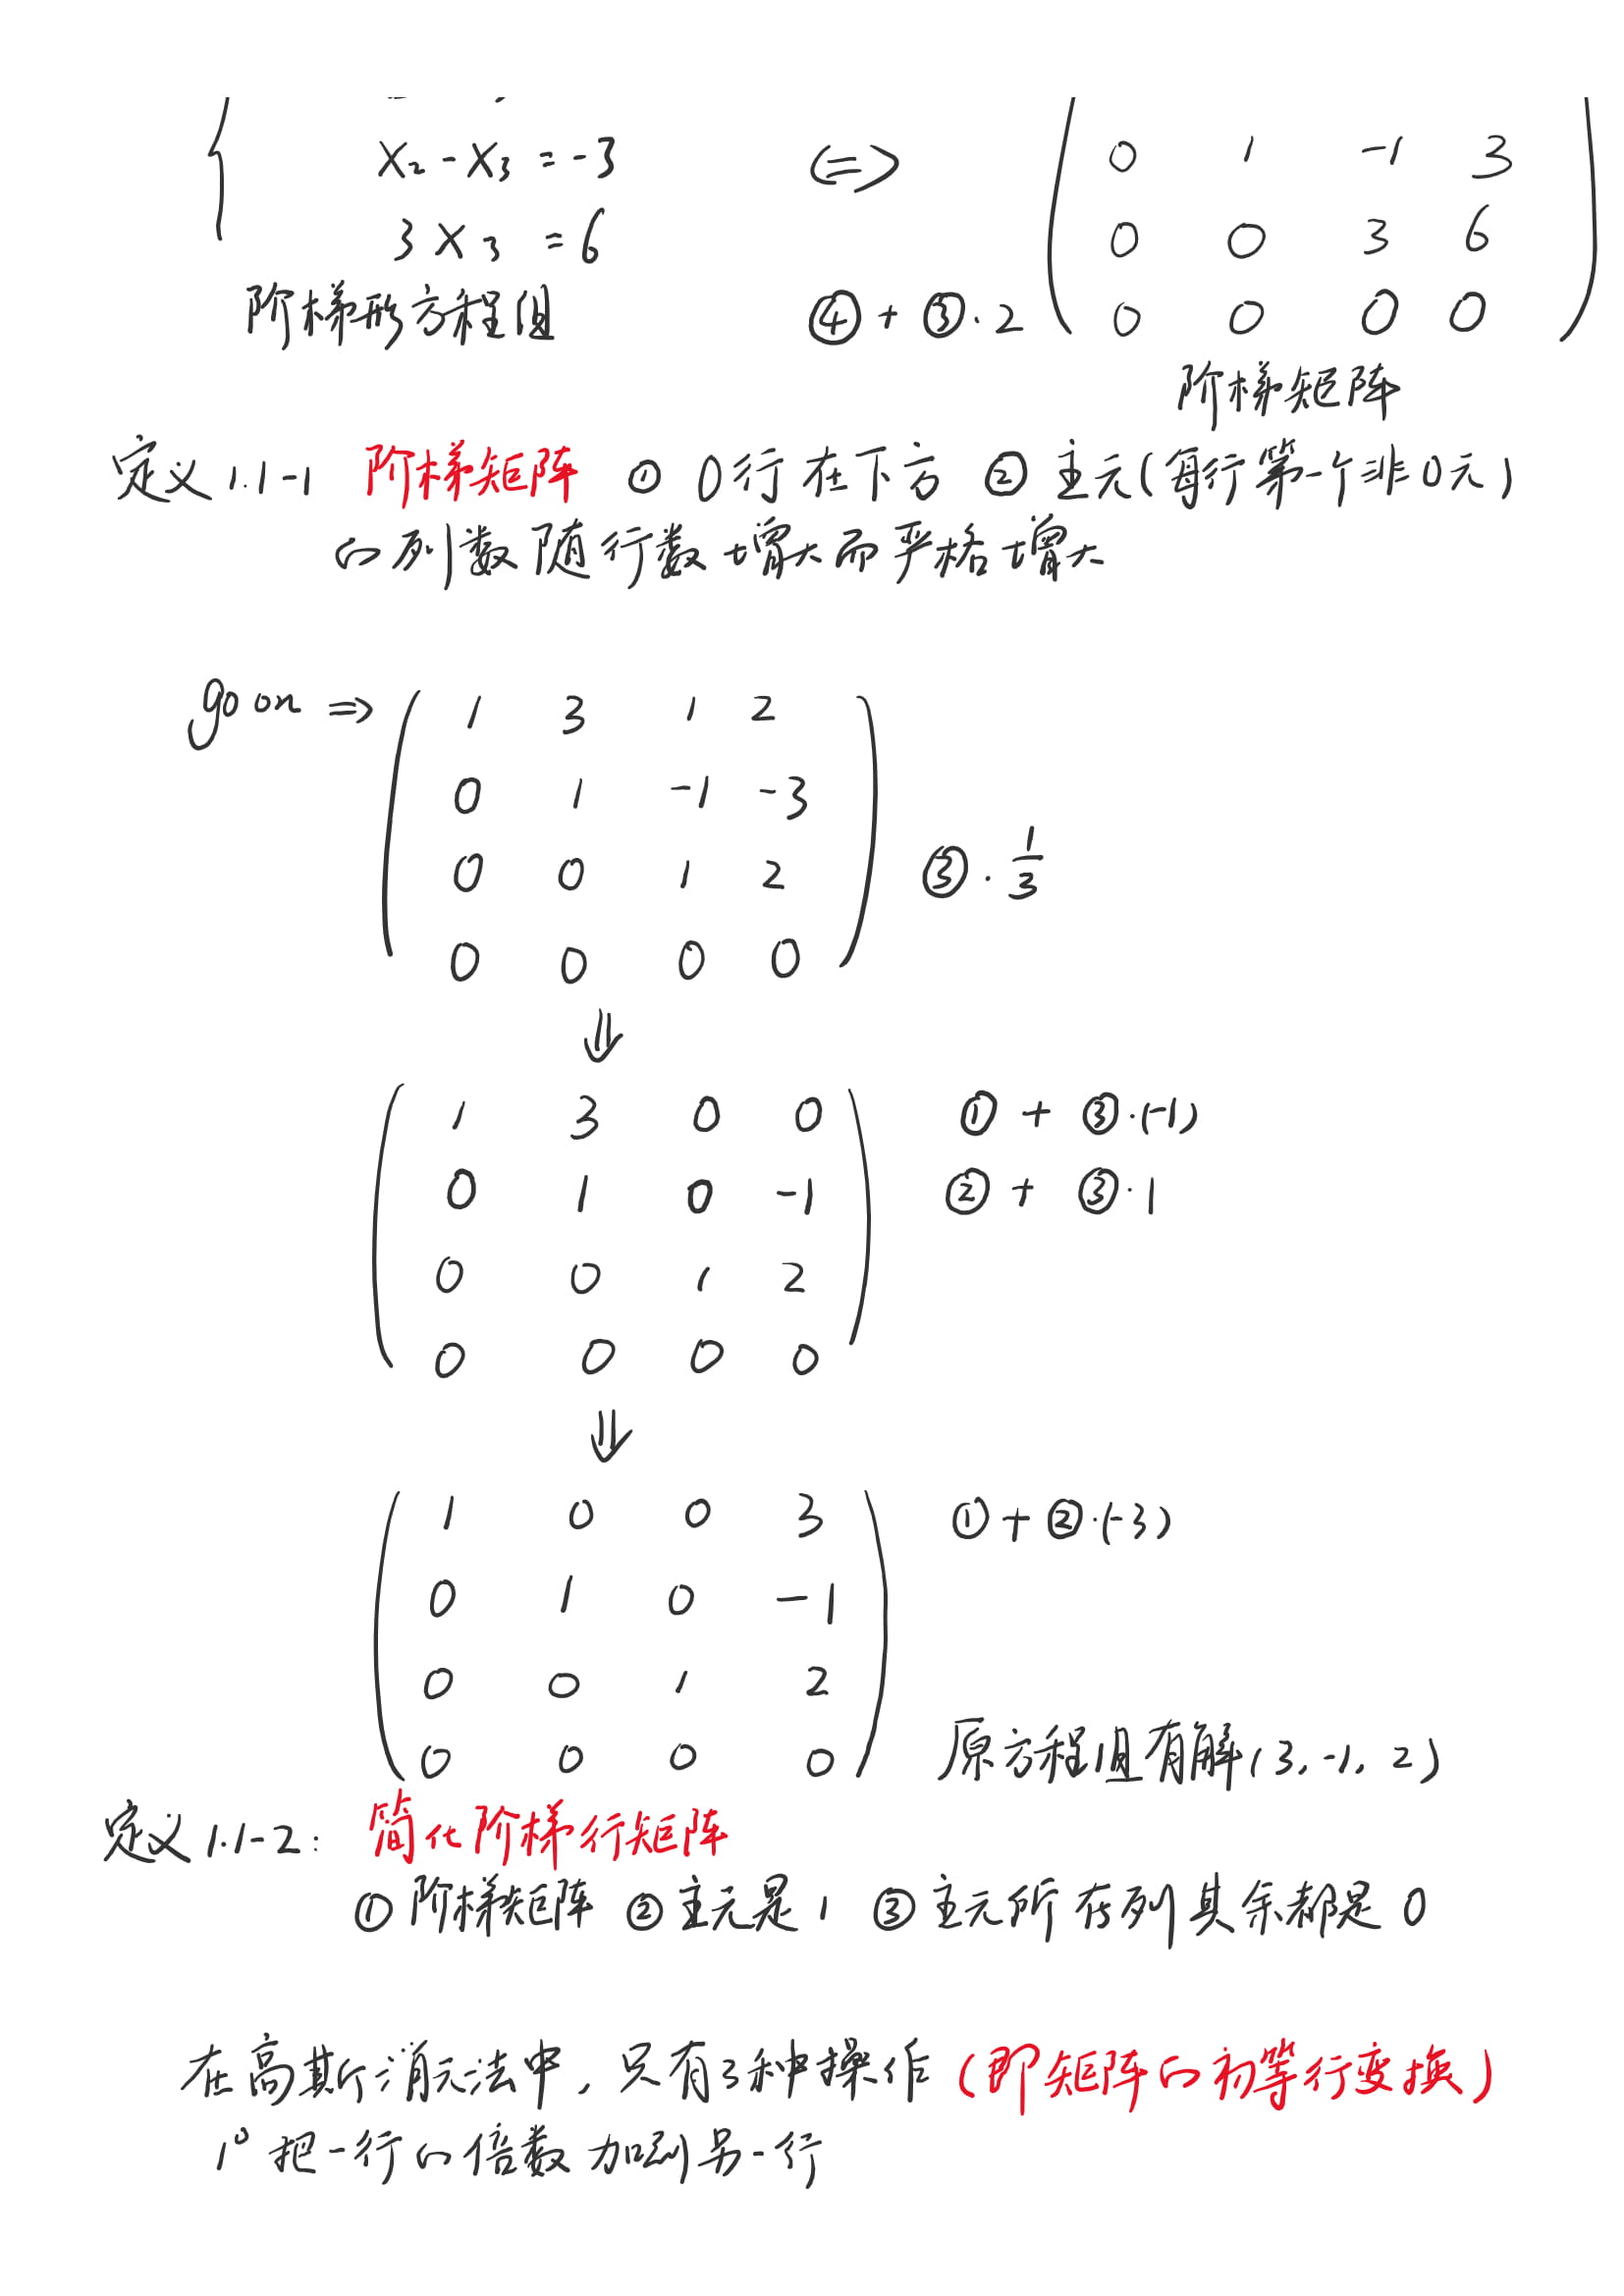 x₂-x₃=-3 (=> 0 1 -1 3
3x₃=6 0 0 3 6
阶梯形方程组 ④+③·2 0 0 0 0
阶梯矩阵
定义1.1-1 阶梯矩阵 ① 0行在下方 ② 主元(每行第一个非0元)
的列数随行数增大而严格增大
go on => 1 3 1 2
0 1 -1 -3
0 0 1 2 ③·1/3
0 0 0 0
⇓
1 3 0 0 ①+③·(-1)
0 1 0 -1 ②+③·1
0 0 1 2
0 0 0 0
⇓
1 0 0 3 ①+②·(-3)
0 1 0 -1
0 0 1 2
0 0 0 0 原方程组有解(3,-1,2)
定义1.1-2: 简化阶梯行矩阵
①阶梯矩阵 ②主元是1 ③主元所在列其余都是0
在高斯消元法中,只有3种操作(即矩阵的初等行变换)
1⁰ 把一行的倍数加到另一行